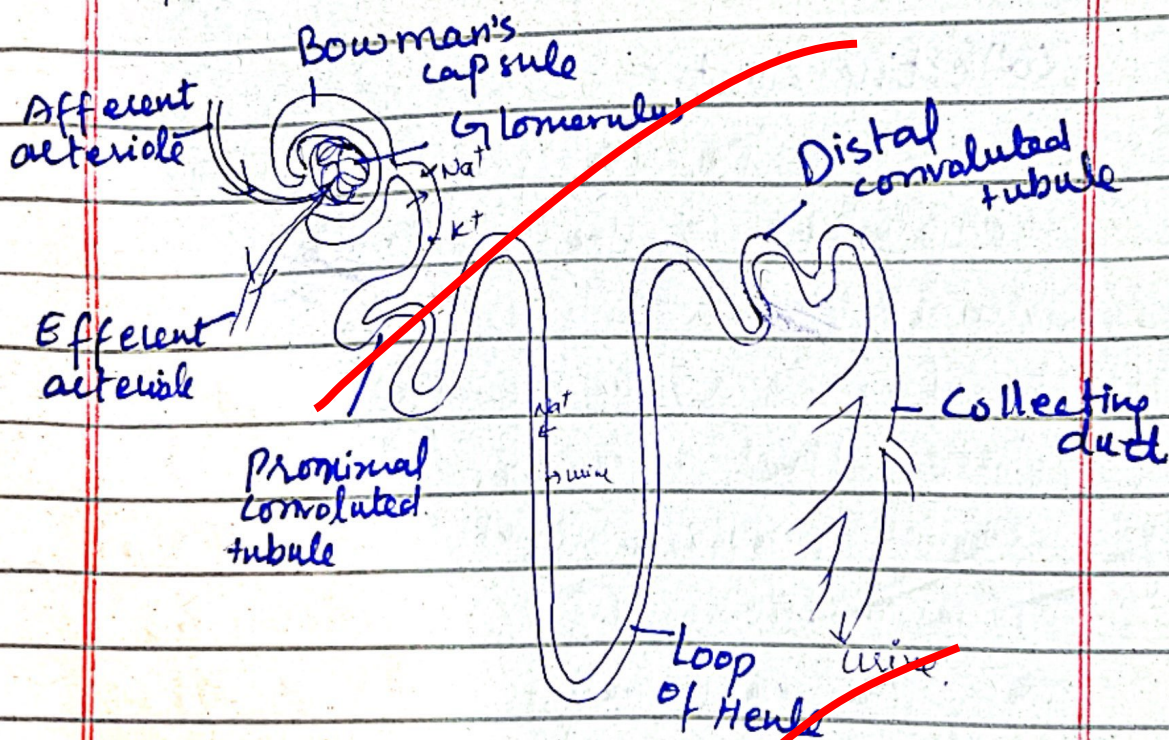 Bowman's
capsule
Afferent
arteriole
Glomerulus
Na+
K+
Distal
convoluted
tubule
Efferent
arteriole
Proximal
convoluted
tubule
Na+
urine
Collecting
duct
Loop
of Henle
urine